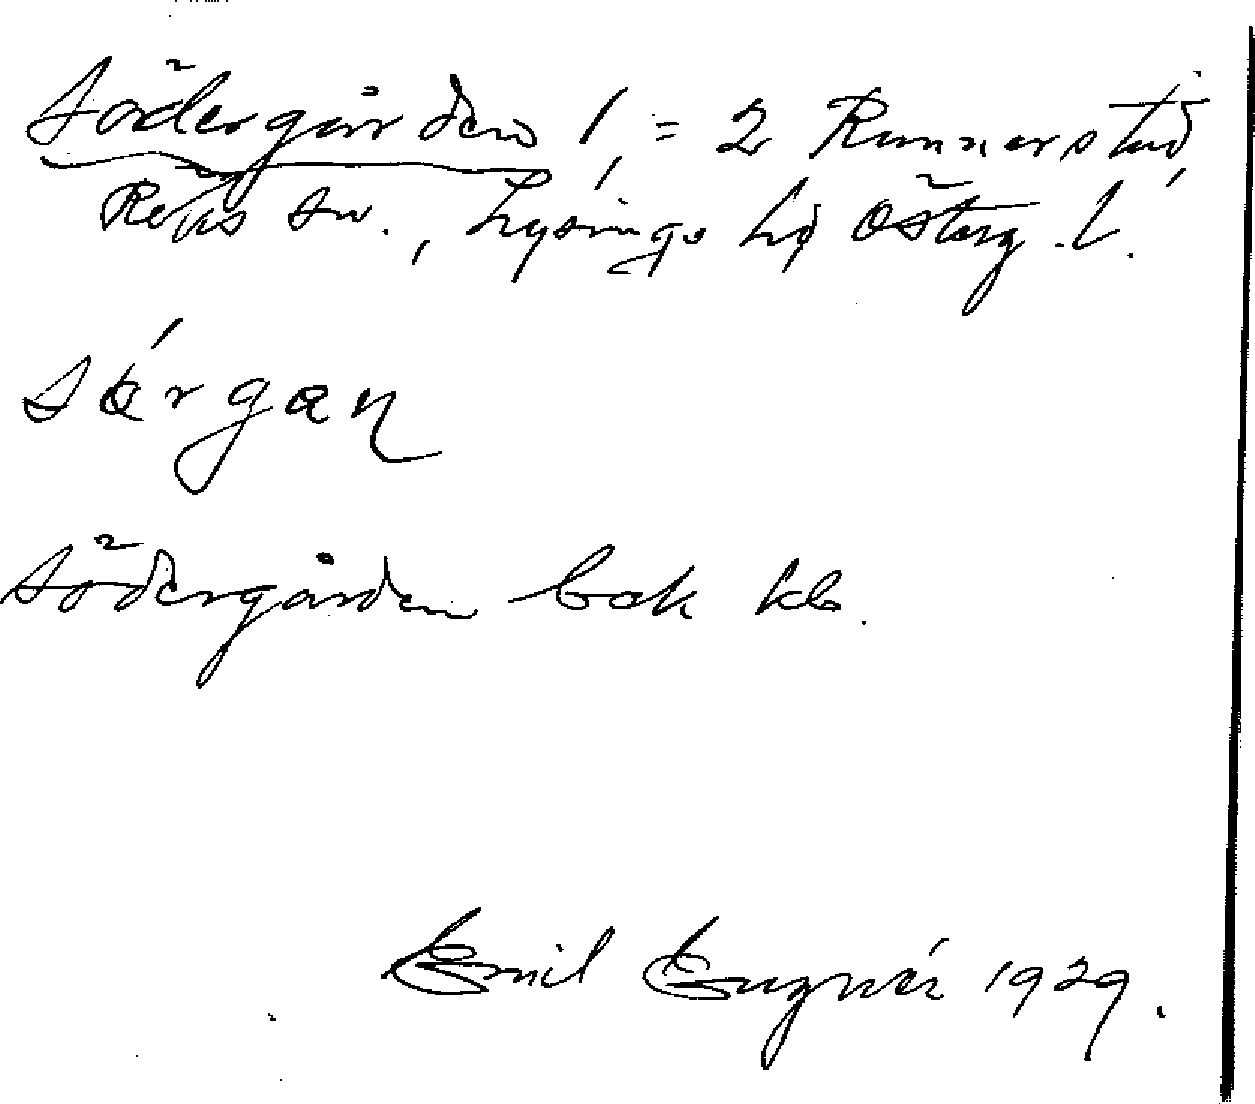 Södergården 1, = 2 Runnerstad,
Röks sn., Lysings hd Österg. l.
sørgaɳ
Södergården bak kb.
Emil Eugnér 1929.